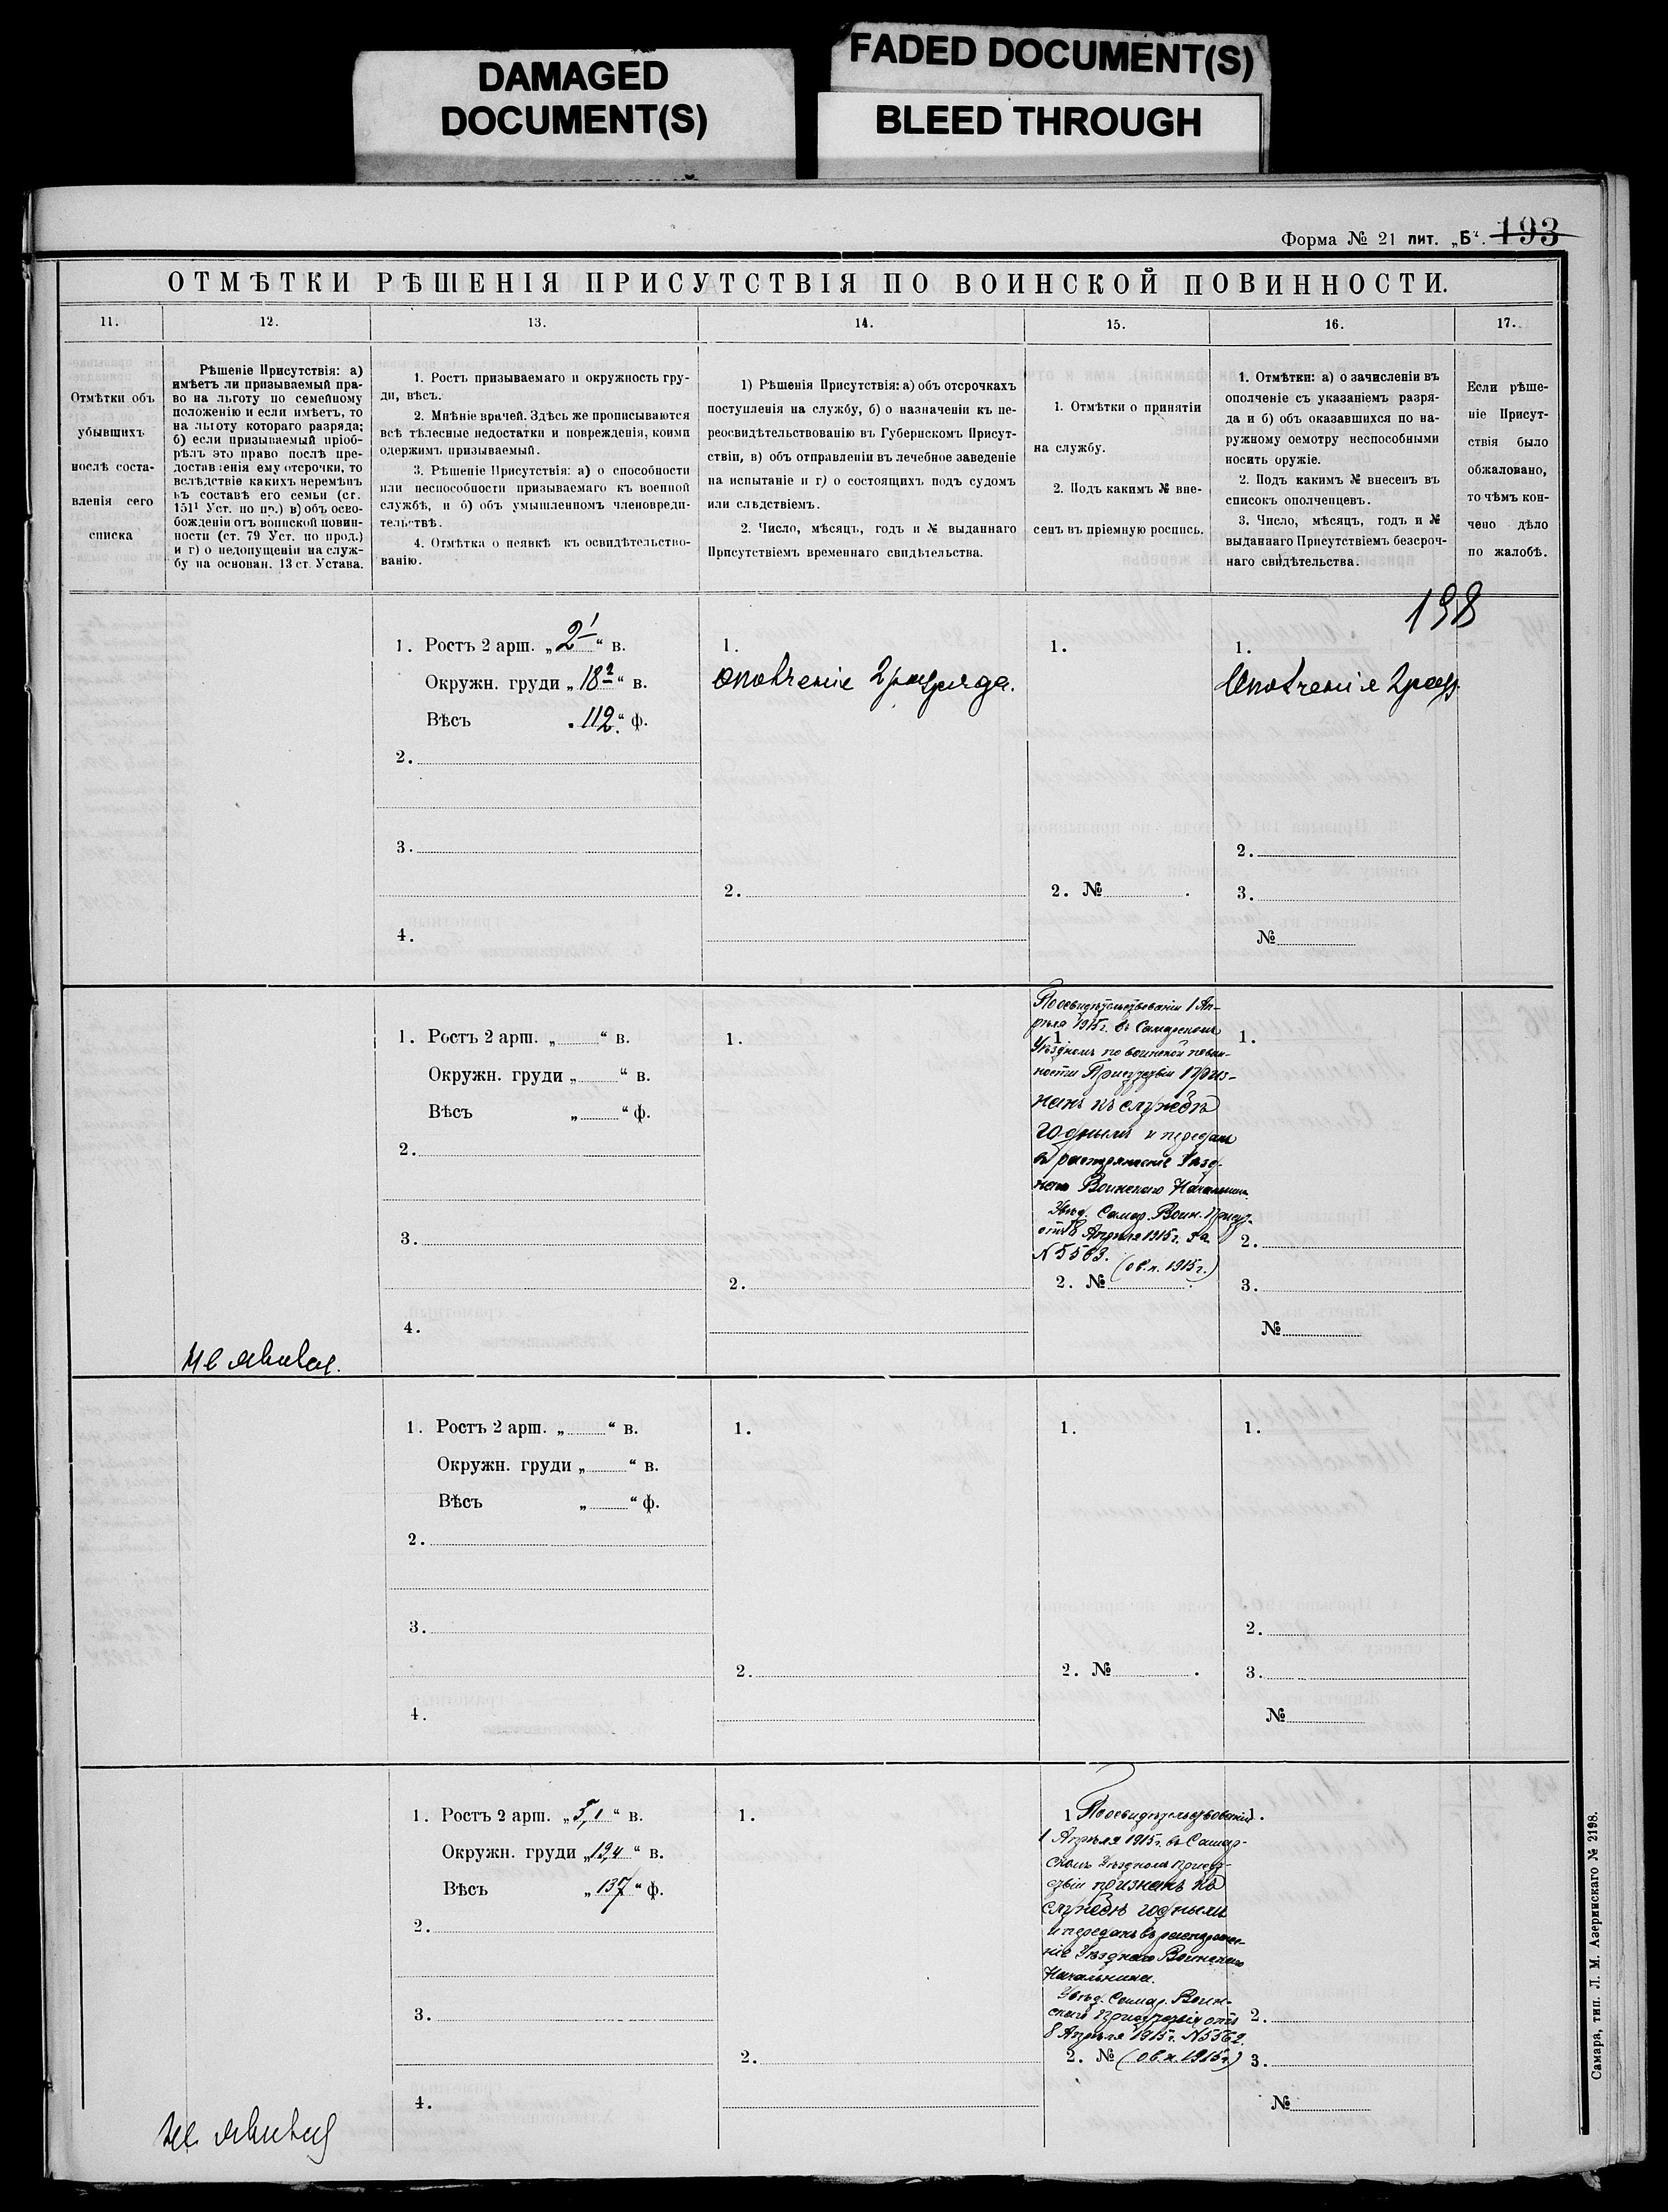 DAMAGED
DOCUMENT(S)
FADED DOCUMENT(S)
BLEED THROUGH
Форма № 21 лит. „Б“. 193
ОТМѢТКИ РѢШЕНІЯ ПРИСУТСТВІЯ ПО ВОИНСКОЙ ПОВИННОСТИ.
11.
12.
13.
14.
15.
16.
17.
Отмѣтки объ
убывшихъ
послѣ соста-
вленія сего
списка
Рѣшеніе Присутствія: а)
имѣетъ ли призываемый пра-
во на льготу по семейному
положенію и если имѣетъ, то
на льготу котораго разряда;
б) если призываемый пріоб-
рѣлъ это право послѣ пре-
доставленія ему отсрочки, то
вслѣдствіе какихъ перемѣнъ
въ составѣ его семьи (ст.
151¹ Уст. по пр.) в) объ осво-
божденіи отъ воинской повин-
ности (ст. 79 Уст. по прод.)
и г) о недопущеніи на служ-
бу на основан. 13 ст. Устава.
1. Ростъ призываемаго и окружность гру-
ди, вѣсъ.
2. Мнѣніе врачей. Здѣсь же прописываются
всѣ тѣлесные недостатки и поврежденія, коими
одержимъ призываемый.
3. Рѣшеніе Присутствія: а) о способности
или неспособности призываемаго къ военной
службѣ, и б) объ умышленномъ членовреди-
тельствѣ.
4. Отмѣтка о неявкѣ къ освидѣтельство-
ванію.
1) Рѣшенія Присутствія: а) объ отсрочкахъ
поступленія на службу, б) о назначеніи къ пе-
реосвидѣтельствованію въ Губернскомъ Присут-
ствіи, в) объ отправленіи въ лечебное заведеніе
на испытаніе и г) о состоящихъ подъ судомъ
или слѣдствіемъ.
2. Число, мѣсяцъ, годъ и № выданнаго
Присутствіемъ временнаго свидѣтельства.
1. Отмѣтки о принятіи
на службу.
2. Подъ какимъ № вне-
сенъ въ пріемную роспись.
1. Отмѣтки: а) о зачисленіи въ
ополченіе съ указаніемъ разря-
да и б) объ оказавшихся по на-
ружному осмотру неспособными
носить оружіе.
2. Подъ какимъ № внесенъ въ
списокъ ополченцевъ.
3. Число, мѣсяцъ, годъ и №
выданнаго Присутствіемъ безсроч-
наго свидѣтельства.
Если рѣше-
ніе Присут-
ствія было
обжаловано,
то чѣмъ кон-
чено дѣло
по жалобѣ.
198
1. Ростъ 2 арш. „2 1“ в.
Окружн. груди „18 2“ в.
Вѣсъ „112“ ф.
2.
3.
4.
1.
ополченіе 2 разряда.
2.
1.
2. №
1.
Ополченія 2 разр.
2.
3.
№
Не явился.
1. Ростъ 2 арш. „ “ в.
Окружн. груди „ “ в.
Вѣсъ „ “ ф.
2.
3.
4.
1.
2.
1.
По освидѣтельствованіи 1 Ап-
рѣля 1915 г. въ Самарскомъ
Уѣздномъ по воинской повин-
ности Присутствіи приз-
нанъ къ службѣ
годнымъ и переданъ
въ распоряженіе Уѣзд-
наго Воинскаго Начальника.
Увѣд. Самар. Воин. Присут.
отъ 8 Апрѣля 1915 г. за
№ 5563.
(ов. п. 1915 г.)
2. №
1.
2.
3.
№
1. Ростъ 2 арш. „ “ в.
Окружн. груди „ “ в.
Вѣсъ „ “ ф.
2.
3.
4.
1.
2.
1.
2. №
1.
2.
3.
№
Не явился
1. Ростъ 2 арш. „5,1“ в.
Окружн. груди „19,4“ в.
Вѣсъ „137“ ф.
2.
3.
4.
1.
2.
1.
По освидѣтельствованіи
1 Апрѣля 1915 г. въ Самар-
скомъ Уѣздномъ Присут-
ствіи признанъ къ
службѣ годнымъ
и переданъ въ распоряже-
ніе Уѣзднаго Воинскаго
Начальника.
Увѣд. Самар. Воин-
скаго Присутствія отъ
8 Апрѣля 1915 г. № 5562.
2. № (ов. п. 1915 г.)
1.
2.
3.
№
Самара, тип. Л. М. Азеринскаго № 2198.